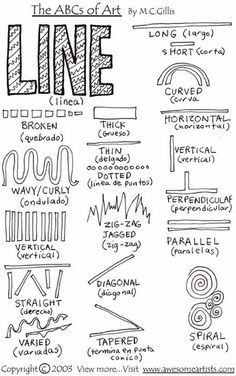 The ABCs of Art By M.C.Gillis
LINE
(línea)
LONG (largo)
SHORT (corta)
CURVED
(curva
BROKEN
(quebrado)
THICK
(Grueso)
HORIZONTAL
(horizontal)
THIN
(delgado)
DOTTED
(línea de puntos)
VERTICAL
(vertical)
WAVY/CURLY
(ondulado)
ZIG-ZAG
JAGGED
(zig-zag)
PERPENDICULAR
(perpendicular)
VERTICAL
(vertical)
PARALLEL
(paralelas)
DIAGONAL
(diagonal)
STRAIGHT
(derecho)
VARIED
(variadas)
TAPERED
(termina en punta
conico)
SPIRAL
(espiral)
Copyright © 2003 View more...Visit www.awesomeartists.com